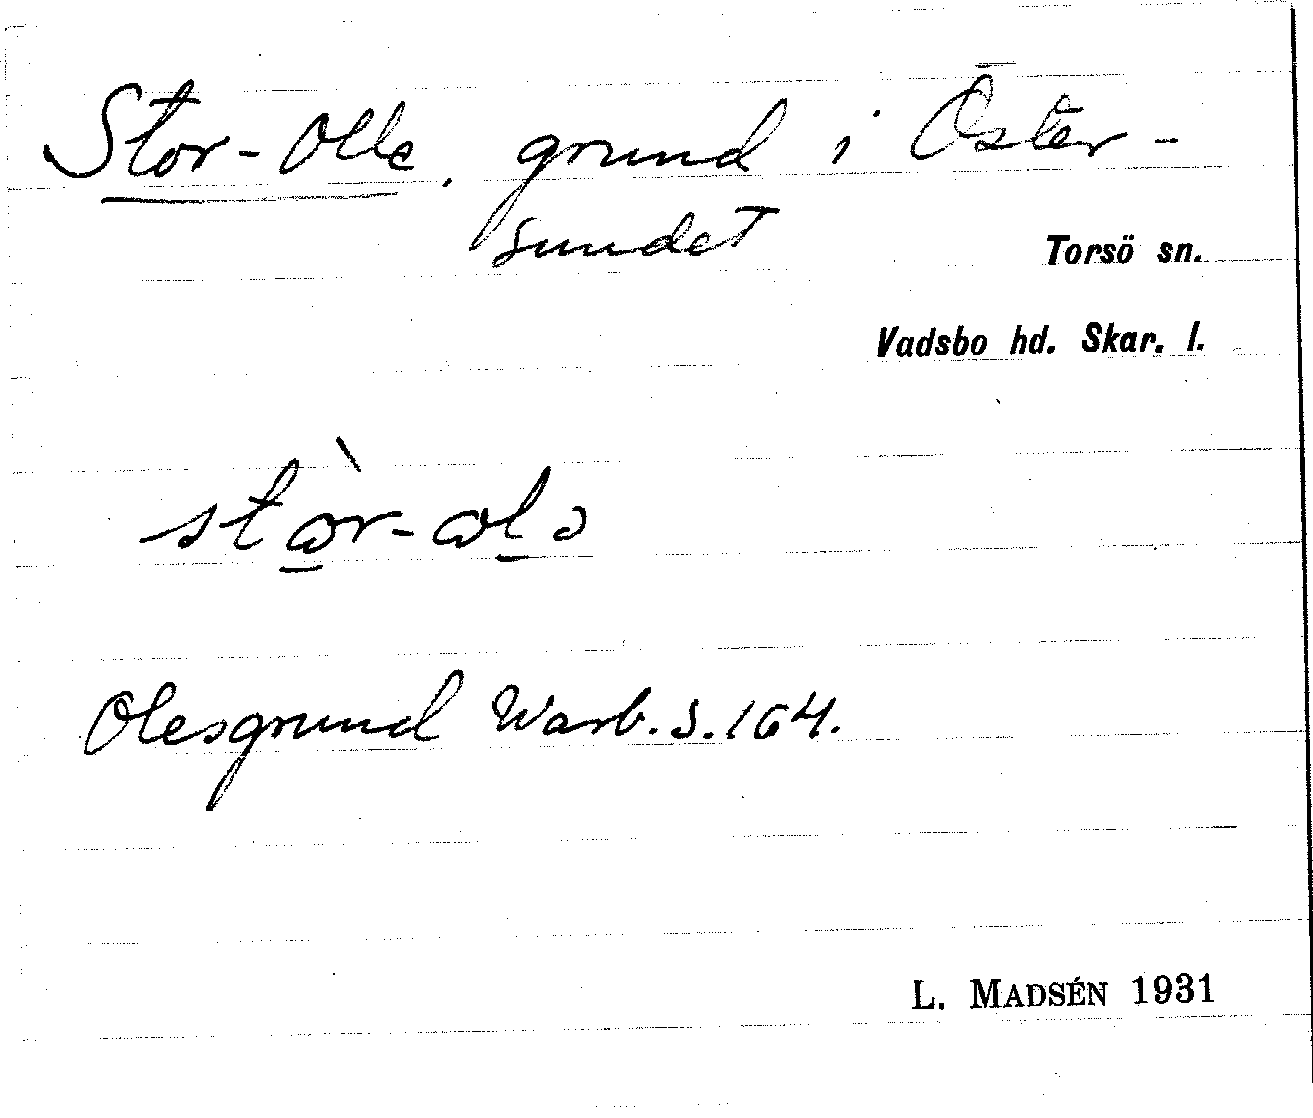 Stor-Olle, grund i Öster-
sundet
Torsö sn.
Vadsbo hd. Skar. l.
stὼ̱r-ωḻə
Olesgrund Warb. S. 164.
L. MADSÉN 1931